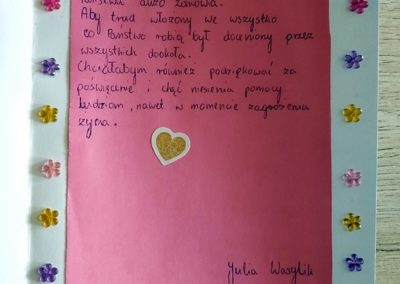 Państwu dużo zdrowia.
Aby trud włożony we wszystko
co Państwo robią był doceniony przez
wszystkich dookoła.
Chciałabym również podziękować za
poświęcenie i chęć niesienia pomocy
ludziom, nawet w momencie zagrożenia
życia.
Julia Wasylik